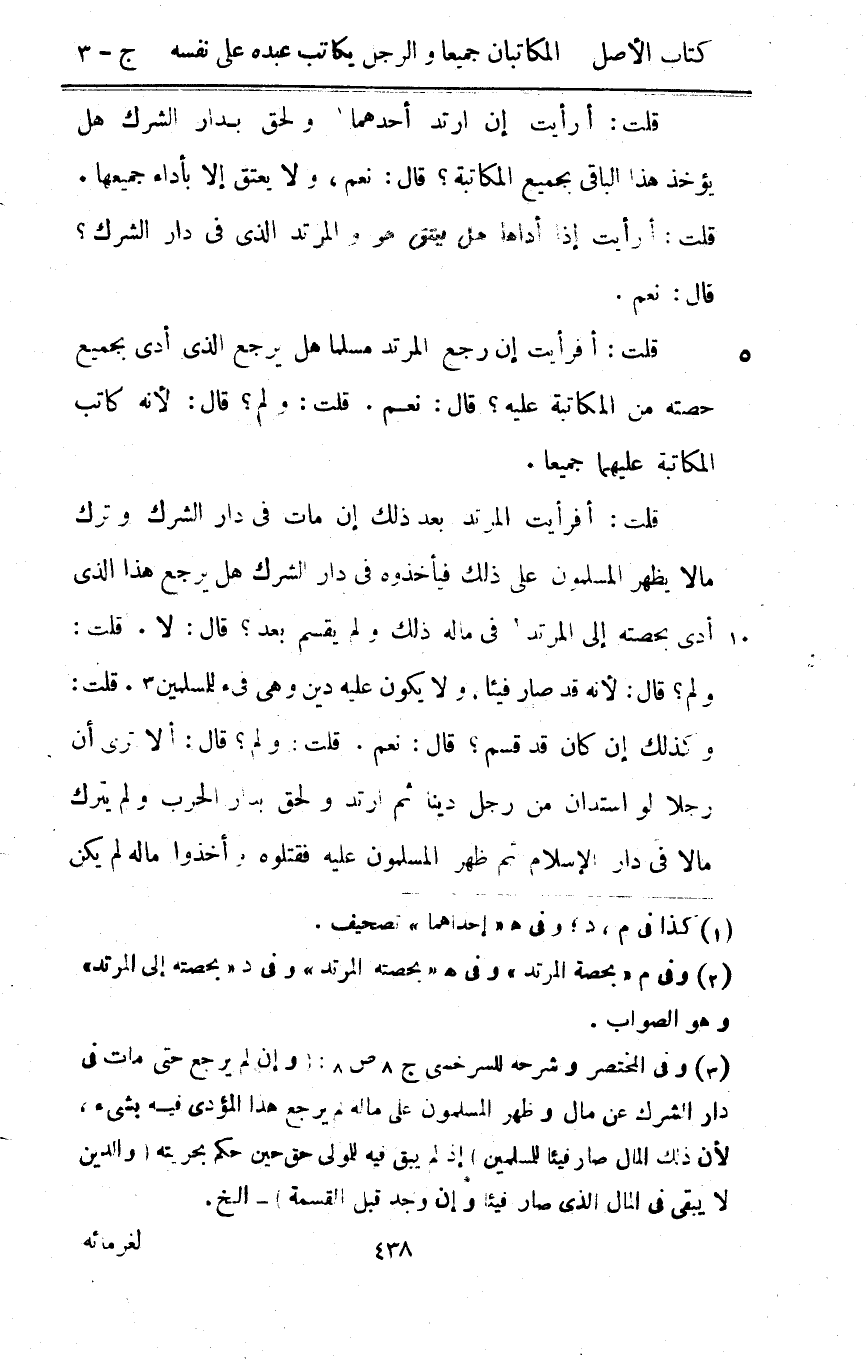 كتاب الأصل المكاتبان جميعا و الرجل يكاتب عبده على نفسه ج - ٣
قلت : أ رأيت إن ارتد أحدهما ١ و لحق بدار الشرك هل
يؤخذ هذا الباقى بجميع المكاتبة ؟ قال : نعم ، و لا يعتق إلا بأداء جميعها .
قلت : أ رأيت إذا أداها هل يعتق هو و المرتد الذى فى دار الشرك ؟
قال : نعم .
٥ قلت : أ فرأيت إن رجع المرتد مسلما هل يرجع الذى أدى بجميع
حصته من المكاتبة عليه ؟ قال : نعم . قلت : و لم ؟ قال : لأنه كاتب
المكاتبة عليهما جميعا .
قلت : أ فرأيت المرتد بعد ذلك إن مات فى دار الشرك و ترك
مالا يظهر المسلمون على ذلك فيأخذوه فى دار الشرك هل يرجع هذا الذى
١٠ أدى بحصته إلى المرتد ٢ فى ماله ذلك و لم يقسم بعد ؟ قال : لا . قلت :
و لم ؟ قال : لأنه قد صار فيئا ، و لا يكون عليه دين و هى فىء للمسلمين ٣ . قلت :
و كذلك إن كان قد قسم ؟ قال : نعم . قلت : و لم ؟ قال : ألا ترى أن
رجلا لو استدان من رجل دينا ثم ارتد و لحق بدار الحرب و لم يترك
مالا فى دار الإسلام ثم ظهر المسلمون عليه فقتلوه و أخذوا ماله لم يكن
(١) كذا فى م ، د ؛ و فى ه « إحداهما » تصحيف .
(٢) و فى م « بحصة المرتد » و فى ه « بحصته المرتد » و فى د « بحصته إلى المرتد »
و هو الصواب .
(٣) و فى المختصر و شرحه للسرخسى ج ٨ ص ٨ : ( و إن لم يرجع حتى مات فى
دار الشرك عن مال و ظهر المسلمون على ماله لم يرجع هذا المؤدى فيه بشىء ،
لأن ذلك المال صار فيئا للمسلمين ) إذ لم يبق فيه للمولى حق حين حكم بحريته ( و الدين
لا يبقى فى المال الذى صار فيئا و إن وجد قبل القسمة ) - الخ .
٤٣٨ لغرمائه